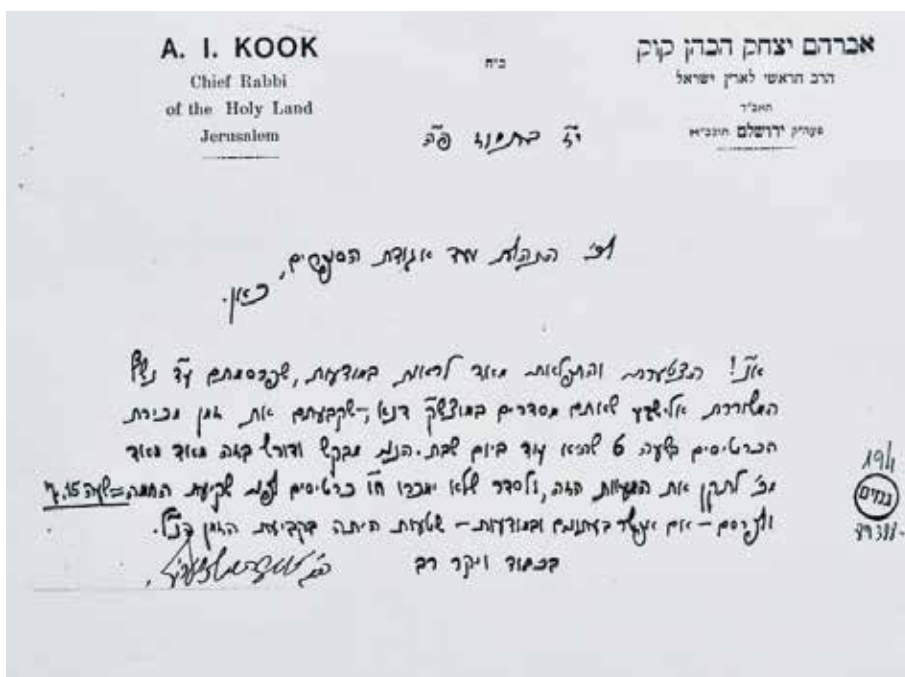 A. I. KOOK
Chief Rabbi
of the Holy Land
Jerusalem
ב״ה
אברהם יצחק הכהן קוק
הרב הראשי לארץ ישראל
האב״ד
פעה״ק ירושלם תובב״א
י״ז בתמוז פ״ה
לכ׳ התהלות ועד אגודת הסופרים,
כאן.
א״נ! הצטערתי והתפלאתי מאד לראות במודעות, שפרסמתם ע״ד נשף
המשוררת אלישבע שאתם מסדרים במוצש״ק דנא, – שקבעתם את זמן מכירת
הכרטיסים בשעה 6 שהיא עוד ביום שבת. הנני מבקש ודורש בזה מאד מאד
מכ׳ לתקן את הטעות הזה, ולסדר שלא ימכרו ח״ו כרטיסים לפני שקיעת החמה = שעה 7.15
ולפרסם – אם אפשר בעתונים ובמודעות – שטעות היתה בקביעת הזמן הנ״ל.
בכבוד ויקר רב
194
גנזים